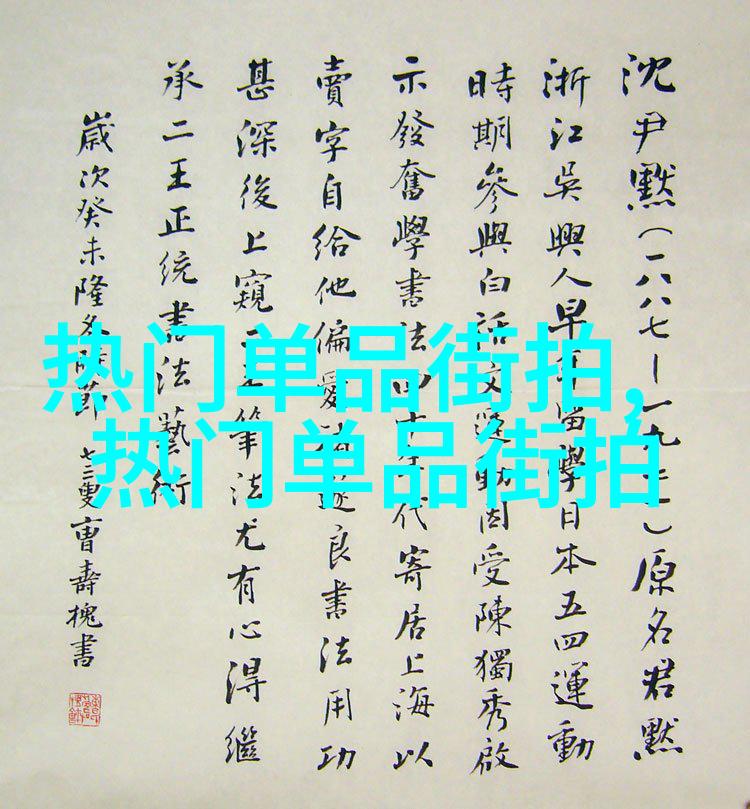 沈尹默(一八八七—一九七一)原名君默
浙江吳興人早年留學日本五四運動
時期參與白話文運動因受陳獨秀啟
示發奮學書法四十年代寄居上海以
賣字自給他偏愛褚遂良書法用功
甚深後上窺二王筆法尤有心得繼
承二王正統書法藝術
歲次癸未隆冬 節 七三叟曹壽槐書
热门单品街拍,
热门单品街拍